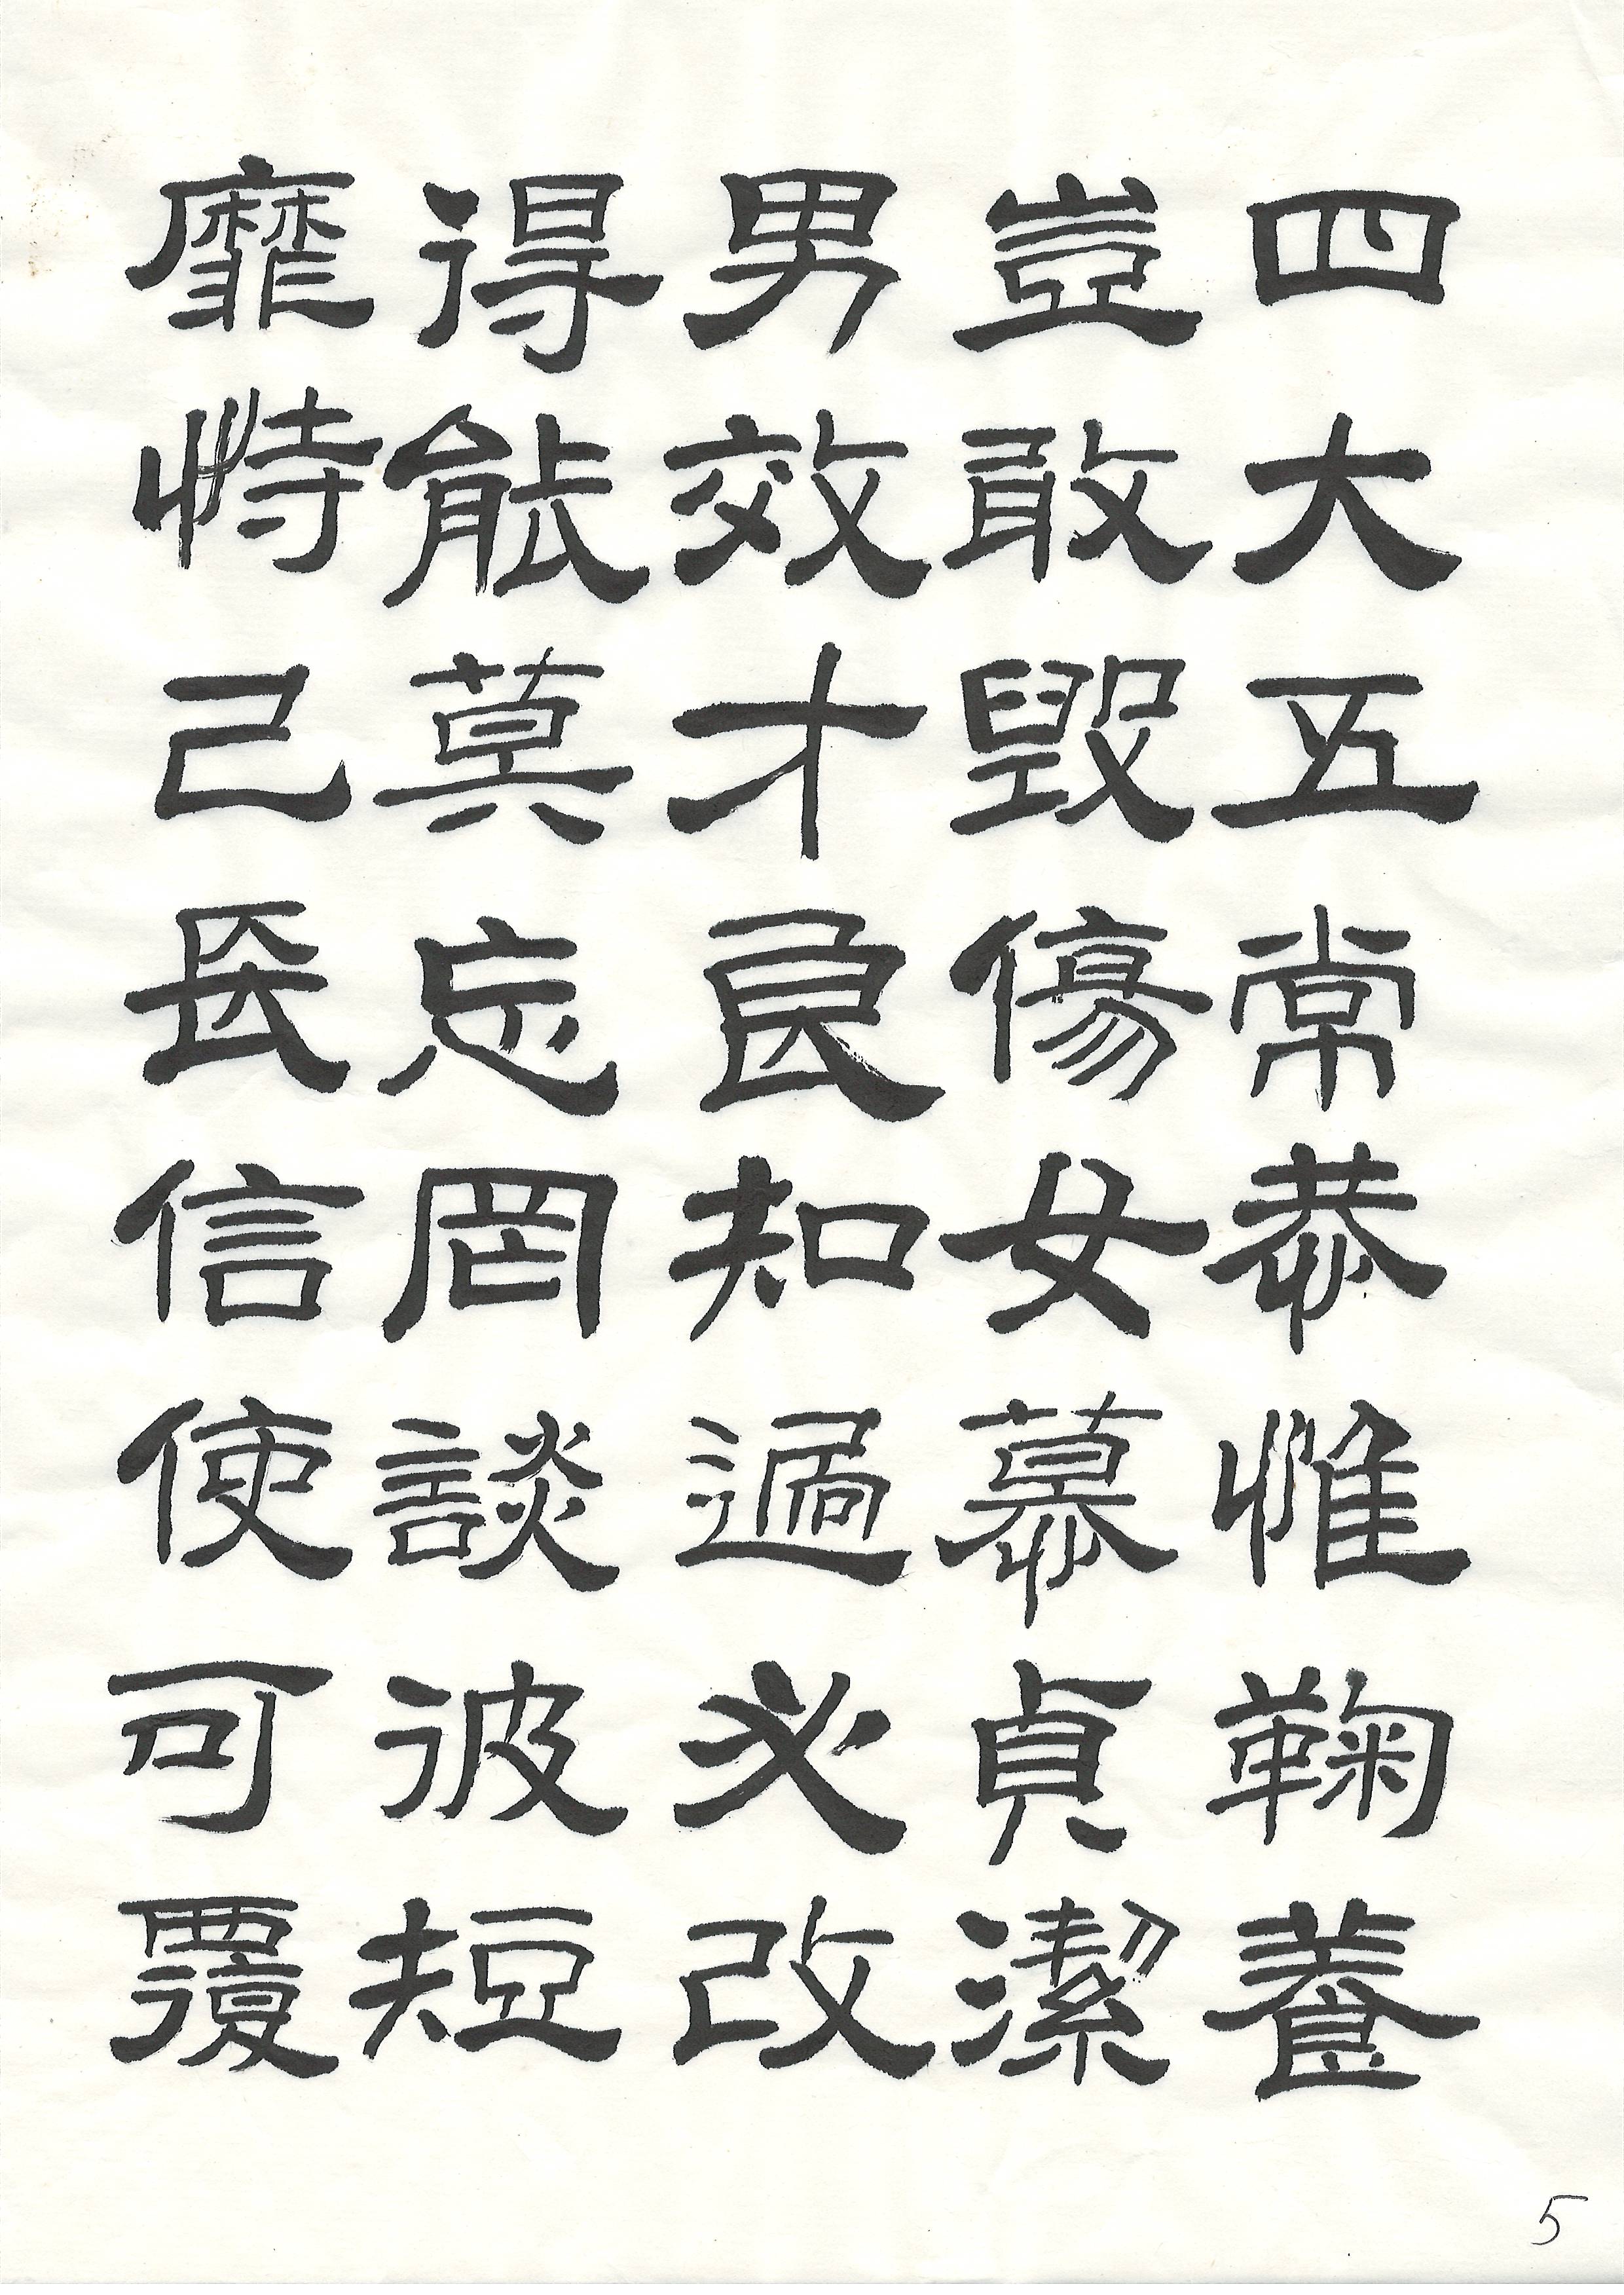 四大五常恭惟鞠養
豈敢毀傷女慕貞潔
男效才良知過必改
得能莫忘罔談彼短
靡恃己長信使可覆
5